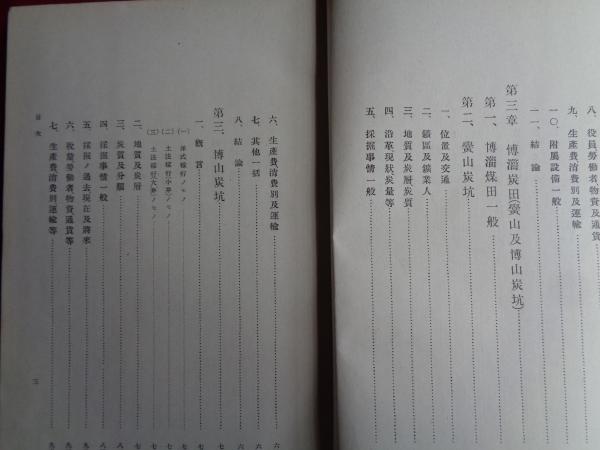 八、役員勞働者物資及通貨
九、生產費消費別及運輸
一〇、附屬設備一般
一一、結論
第三章 博淄炭田(黌山及博山炭坑)
第一、博淄煤田一般
第二、黌山炭坑
一、位置及交通
二、鑛區及鑛業人
三、地質及炭層炭質
四、沿革現狀炭量等
五、採掘事情一般
六、生產費消費別及運輸 六
七、其他一括 六
八、結論 六
第三、博山炭坑 七
一、概言 七
(一)洋式樣行ノモノ 七
(二)土法樣行小夥ノモノ 七
(三)土法樣行大夥ノモノ 七
二、地質及炭層 七
三、炭質及分類 八
四、採掘事情一般 八
五、採掘ノ過去現在及將來 九
六、役員勞働者物資通貨等 九
七、生產費消費別運輸等 九
目次
三